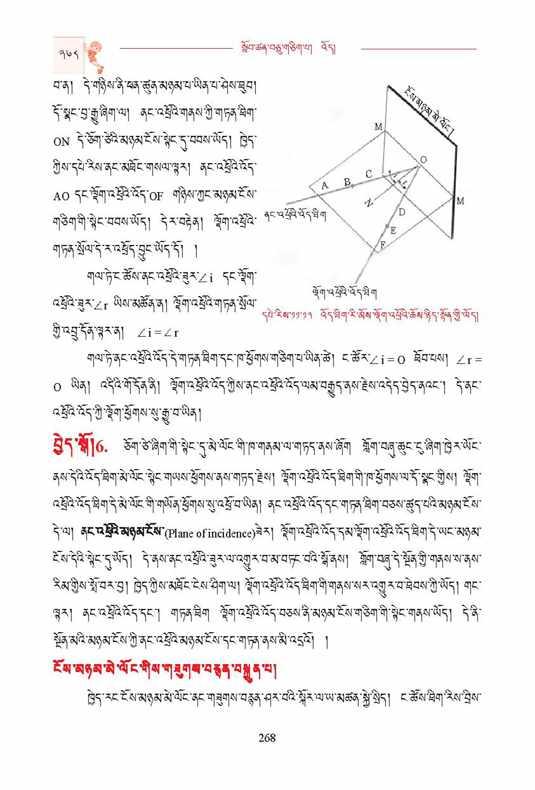 ༢༦༨
སློབ་ཚན་བཅུ་གཅིག་པ། འོད།
བ་ན། དེ་གཉིས་ནི་ཕན་ཚུན་མཉམ་པ་ཡིན་པ་ཤེས་ཐུབ།
དོ་སྣང་བྱ་རྒྱུ་ཞིག་ལ། ནང་འཕྲོའི་གནས་ཀྱི་གཏན་ཐིག་
ON དེ་ཅོག་ཙེའི་མཉམ་ངོས་སྟེང་དུ་བབས་ཡོད། ཁྱེད་
ཀྱིས་དཔེ་རིས་ནང་མཐོང་གསལ་ལྟར། ནང་འཕྲོའི་འོད་
AO དང་ལྡོག་འཕྲོའི་འོད་OF གཉིས་ཀྱང་མཉམ་ངོས་
གཅིག་གི་སྟེང་བབས་ཡོད། དེར་བརྟེན། ལྡོག་འཕྲོའི་
གཏན་སྲོལ་དེ་ར་འཕྲོད་བྱུང་ཡོད་དོ། །
གལ་ཏེ་ང་ཚོས་ནང་འཕྲོའི་ཟུར་∠i དང་ལྡོག་
འཕྲོའི་ཟུར་∠r ཡིས་མཚོན་ན། ལྡོག་འཕྲོའི་གཏན་སྲོལ་
གྱི་འབྲུ་དོན་ལྟར་ན། ∠i = ∠r
ངོས་མཉམ་མེ་ལོང་།
M
O
C
A
B
N
D
M
E
F
ནང་འཕྲོའི་འོད་ཐིག
ལྡོག་འཕྲོའི་འོད་ཐིག
དཔེ་རིས་༡༡.༡༡ འོད་ཐིག་རི་མོས་ལྡོག་འཕྲོའི་ཆོས་ཉིད་སྟོན་གྱི་ཡོད།
གལ་ཏེ་ནང་འཕྲོའི་འོད་དེ་གཏན་ཐིག་དང་ཁ་ཕྱོགས་གཅིག་པ་ཡིན་ཚེ། ང་ཚོར་∠i = O ཐོབ་པས། ∠r =
O ཡིན། འདིའི་གོ་དོན་ནི། ལྡོག་འཕྲོའི་འོད་ཀྱིས་ནང་འཕྲོའི་འོད་ལམ་བརྒྱུད་ནས་རྗེས་འདེད་བྱེད་ནའང་། དེ་ནང་
འཕྲོའི་འོད་ཀྱི་ལྡོག་ཕྱོགས་སུ་རྒྱུ་བ་ཡིན།
བྱེད་སྒོ།6. ཅོག་ཙེ་ཞིག་གི་སྟེང་དུ་མེ་ལོང་གི་ཁ་གནམ་ལ་གཏད་ནས་ཞོག གློག་བཞུ་ཆུང་ངུ་ཞིག་ཁྱེར་ཡོང་
ནས་དེའི་འོད་ཐིག་མེ་ལོང་སྟེང་གཡས་ཕྱོགས་ནས་གཏད་རྗེས། ལྡོག་འཕྲོའི་འོད་ཐིག་གི་ཁ་ཕྱོགས་ལ་དོ་སྣང་གྱིས། ལྡོག་
འཕྲོའི་འོད་ཐིག་དེ་མེ་ལོང་གི་གཡོན་ཕྱོགས་སུ་འཕྲོ་བ་ཡིན། ནང་འཕྲོའི་འོད་དང་གཏན་ཐིག་བཅས་ཚུད་པའི་མཉམ་ངོས་
དེ་ལ། ནང་འཕྲོའི་མཉམ་ངོས་(Plane of incidence)ཟེར། ལྡོག་འཕྲོའི་འོད་དམ་ལྡོག་འཕྲོའི་འོད་ཐིག་དེ་ཡང་མཉམ་
ངོས་དེའི་སྟེང་དུ་ཡོད། དེ་ནས་ནང་འཕྲོའི་ཟུར་ལ་འགྱུར་བ་མ་བཏང་བའི་སྒོ་ནས། གློག་བཞུ་དེ་སྔོན་གྱི་གནས་ས་ནས་
རིམ་གྱིས་སྤོ་བར་བྱ། ཁྱེད་ཀྱིས་མཐོང་ངེས་ཤིག་ལ། ལྡོག་འཕྲོའི་འོད་ཐིག་གི་གནས་སར་འགྱུར་བ་ཐེབས་ཀྱི་ཡོད། གང་
ལྟར། ནང་འཕྲོའི་འོད་དང་། གཏན་ཐིག ལྡོག་འཕྲོའི་འོད་བཅས་ནི་མཉམ་ངོས་གཅིག་གི་སྟེང་གནས་ཡོད། དེ་ནི་
སྔོན་མའི་མཉམ་ངོས་ཀྱི་ནང་འཕྲོའི་མཉམ་ངོས་དང་གཏན་ནས་མི་འདྲའོ། །
ངོས་མཉམ་མེ་ལོང་གིས་གཟུགས་བརྙན་བསྐྲུན་པ།
ཁྱེད་རང་ངོས་མཉམ་མེ་ལོང་ནང་གཟུགས་བརྙན་ཤར་བའི་སྐོར་ལ་ཡ་མཚན་སྐྱེ་སྲིད། ང་ཚོས་ཐིག་རིས་བྲིས་
268